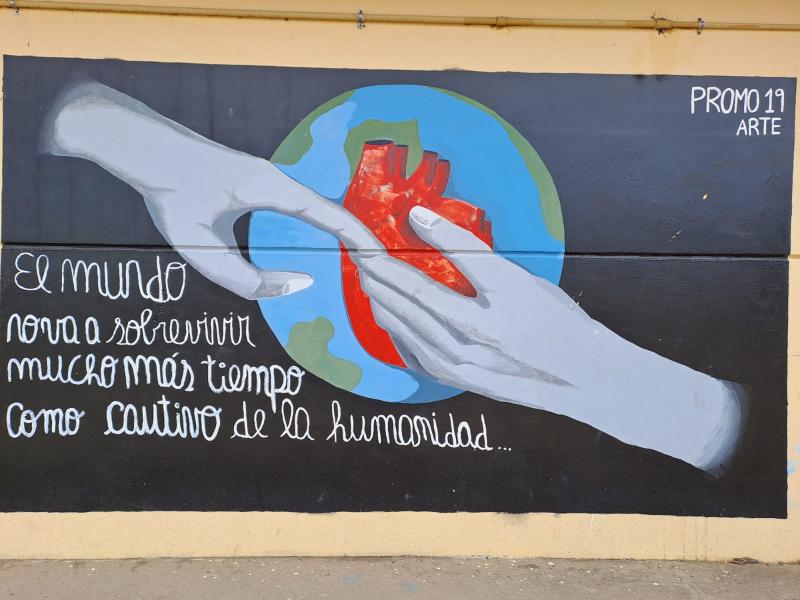 PROMO 19
ARTE
El mundo
nova a sobrevivir
mucho más tiempo
como cautivo de la humanidad...